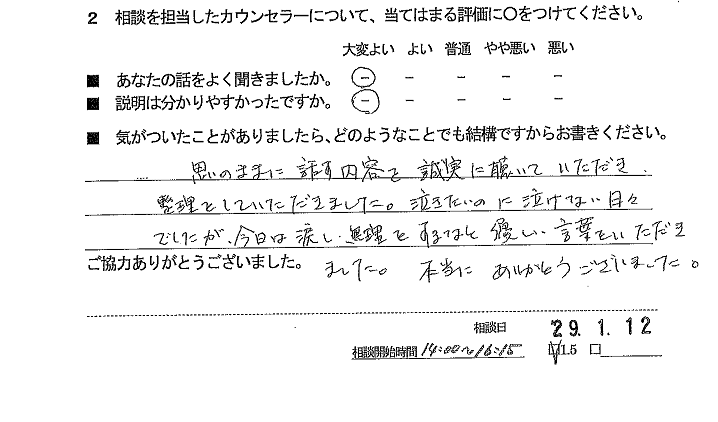 2 相談を担当したカウンセラーについて、当てはまる評価に○をつけてください。
大変よい よい 普通 やや悪い 悪い
■ あなたの話をよく聞きましたか。 － － － － －
■ 説明は分かりやすかったですか。 － － － － －
■ 気がついたことがありましたら、どのようなことでも結構ですからお書きください。
思いのままに話す内容を誠実に聴いていただき、
整理をしていただきました。泣きたいのに泣けない日々
でしたが、今日は涙し、無理をするなと優しい言葉をいただき
ました。本当にありがとうございました。
ご協力ありがとうございました。
相談日 29. 1. 12
相談開始時間 14:00～16:15 □1.5 □